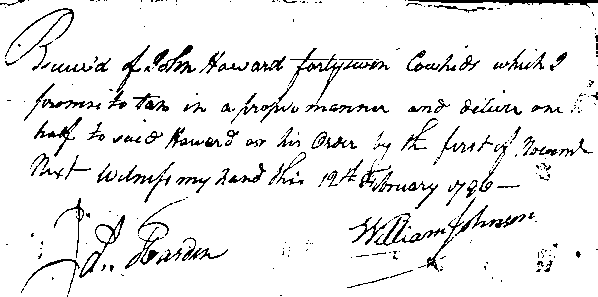 Receiv'd of John Howard fortyseven Cowhids which I
promis to tan in a propper manner and deliver one
half to said Howard or his Order by the first of Novemb
Next Witness my hand this 12th February 1796 —
William Johnson
Jd. Hardin